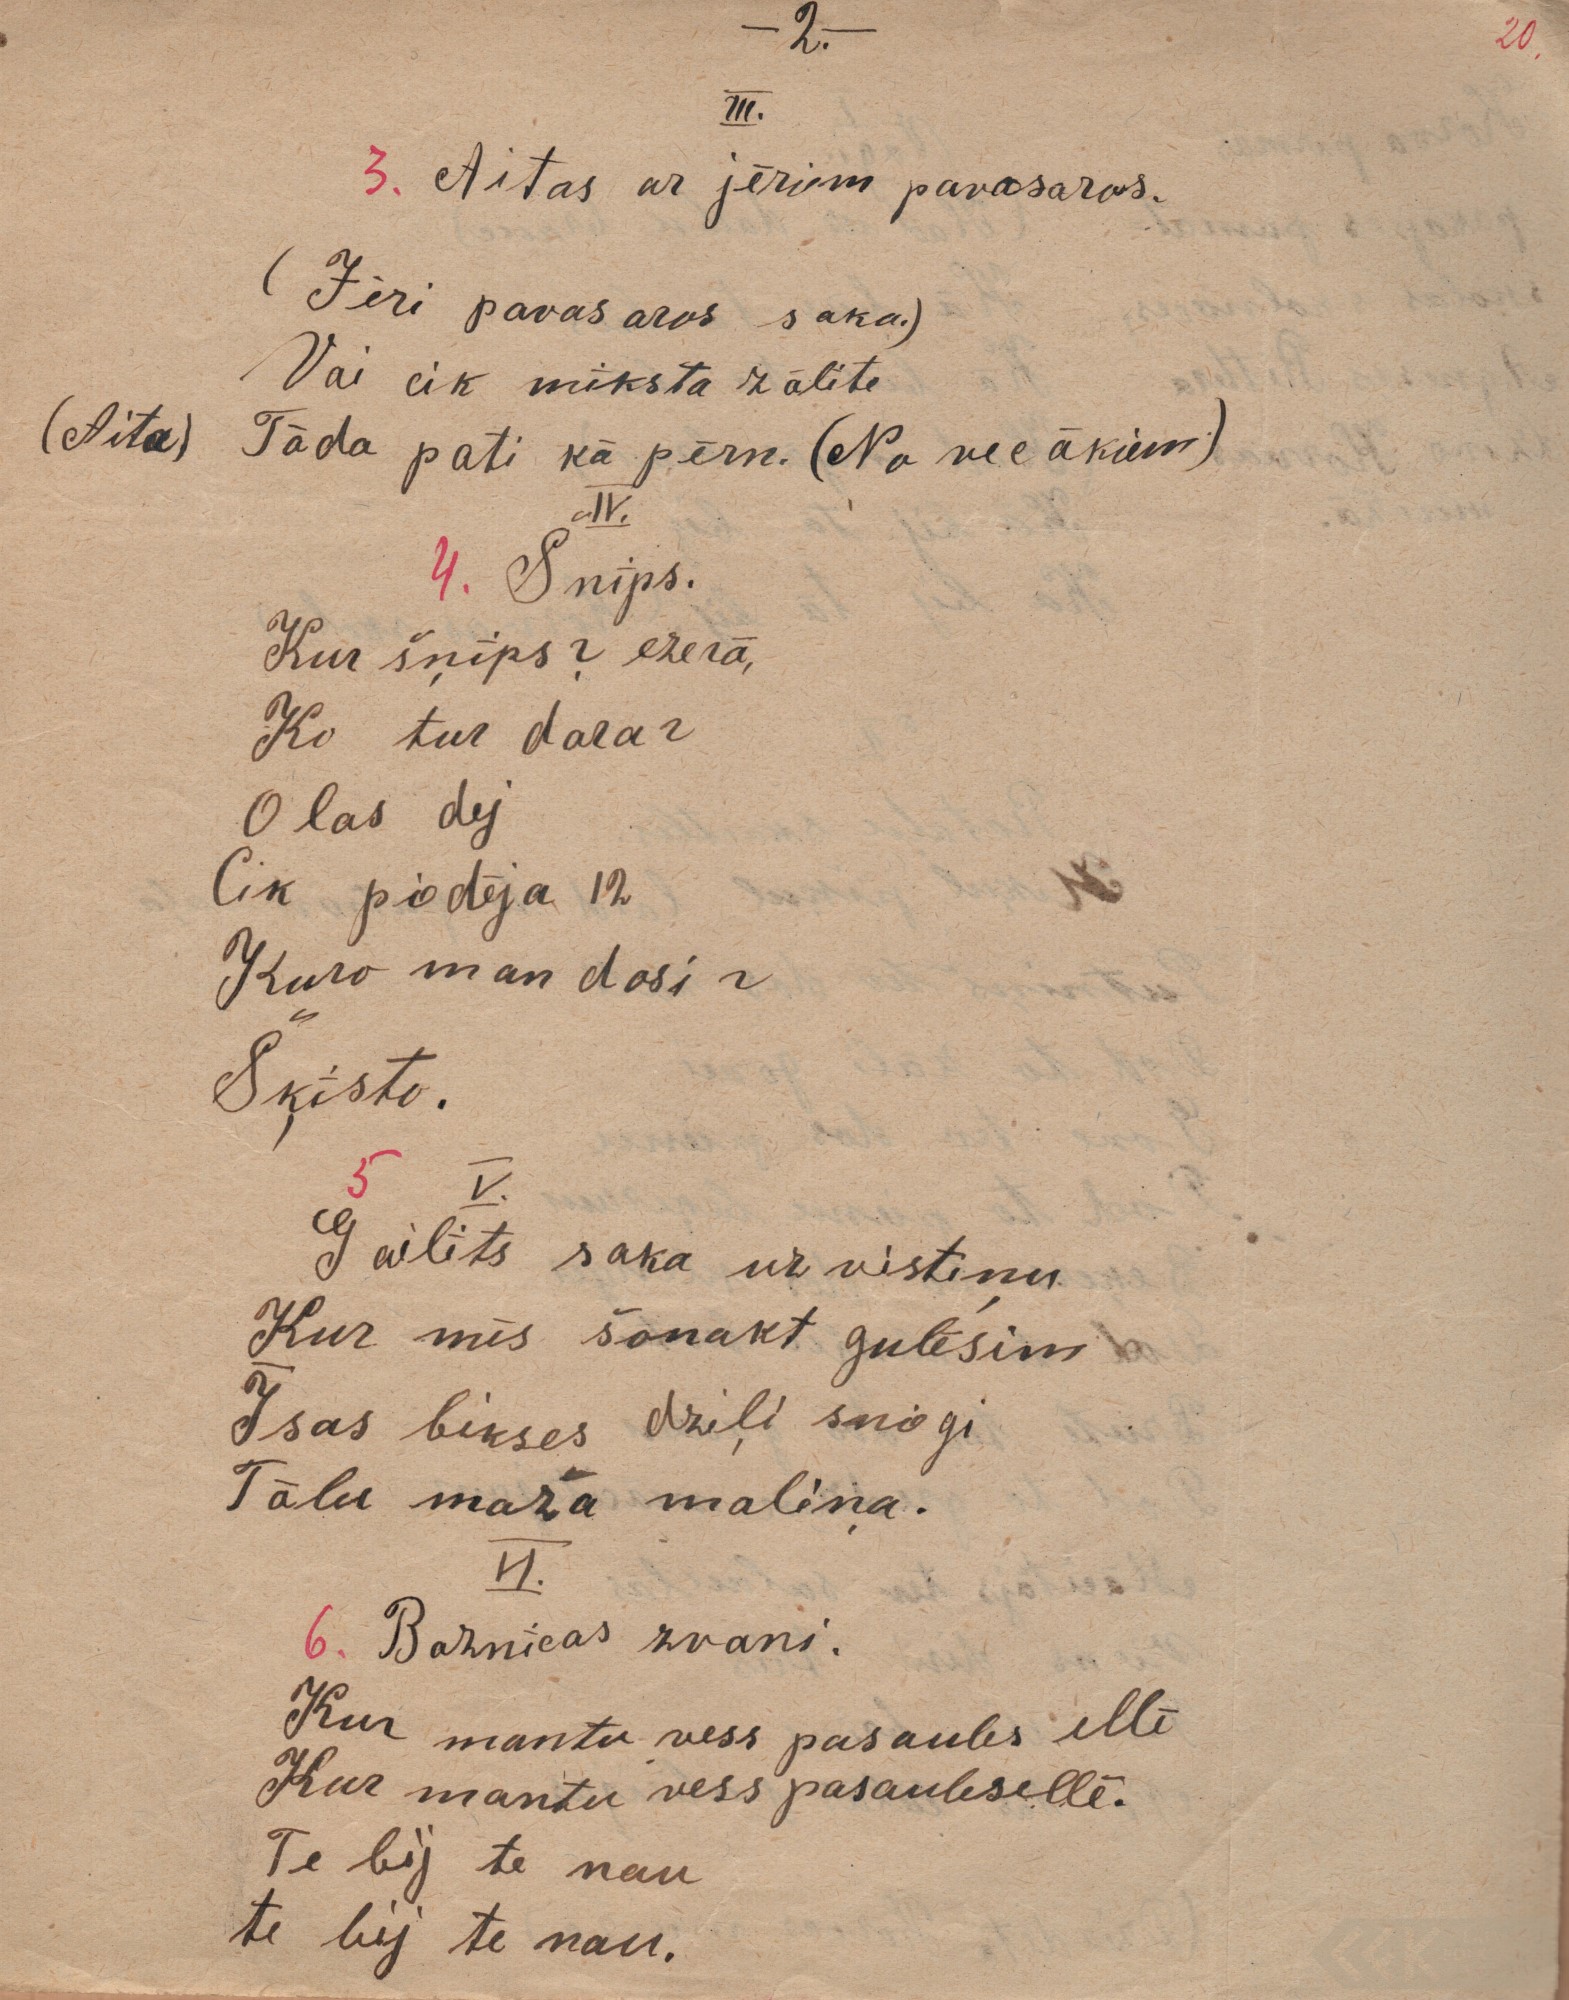 — 2. —
20.
III.
3. Aitas ar jēriem pavasaros.
(Jēri pavasaros saka.)
Vai cik mīksta zālīte
(Aita) Tāda pati kā pērn. (No vecākiem.)
IV.
4. Šnīps.
Kur šņīps? ezerā,
Ko tur dara?
Olas dēj
Cik piedēja 12
Kuro man dosi?
Šķīsto.
5 V.
Gailīts saka uz vistiņu
Kur mēs šonakt gulēsim
Īsas bikses dziļi sniegi
Tālu maža maliņa.
VI.
6. Baznīcas zvani.
Kur mantu ņess pasaules ellē
Kur mantu ņess pasaules ellē.
Te bij te nau
te bij te nau.